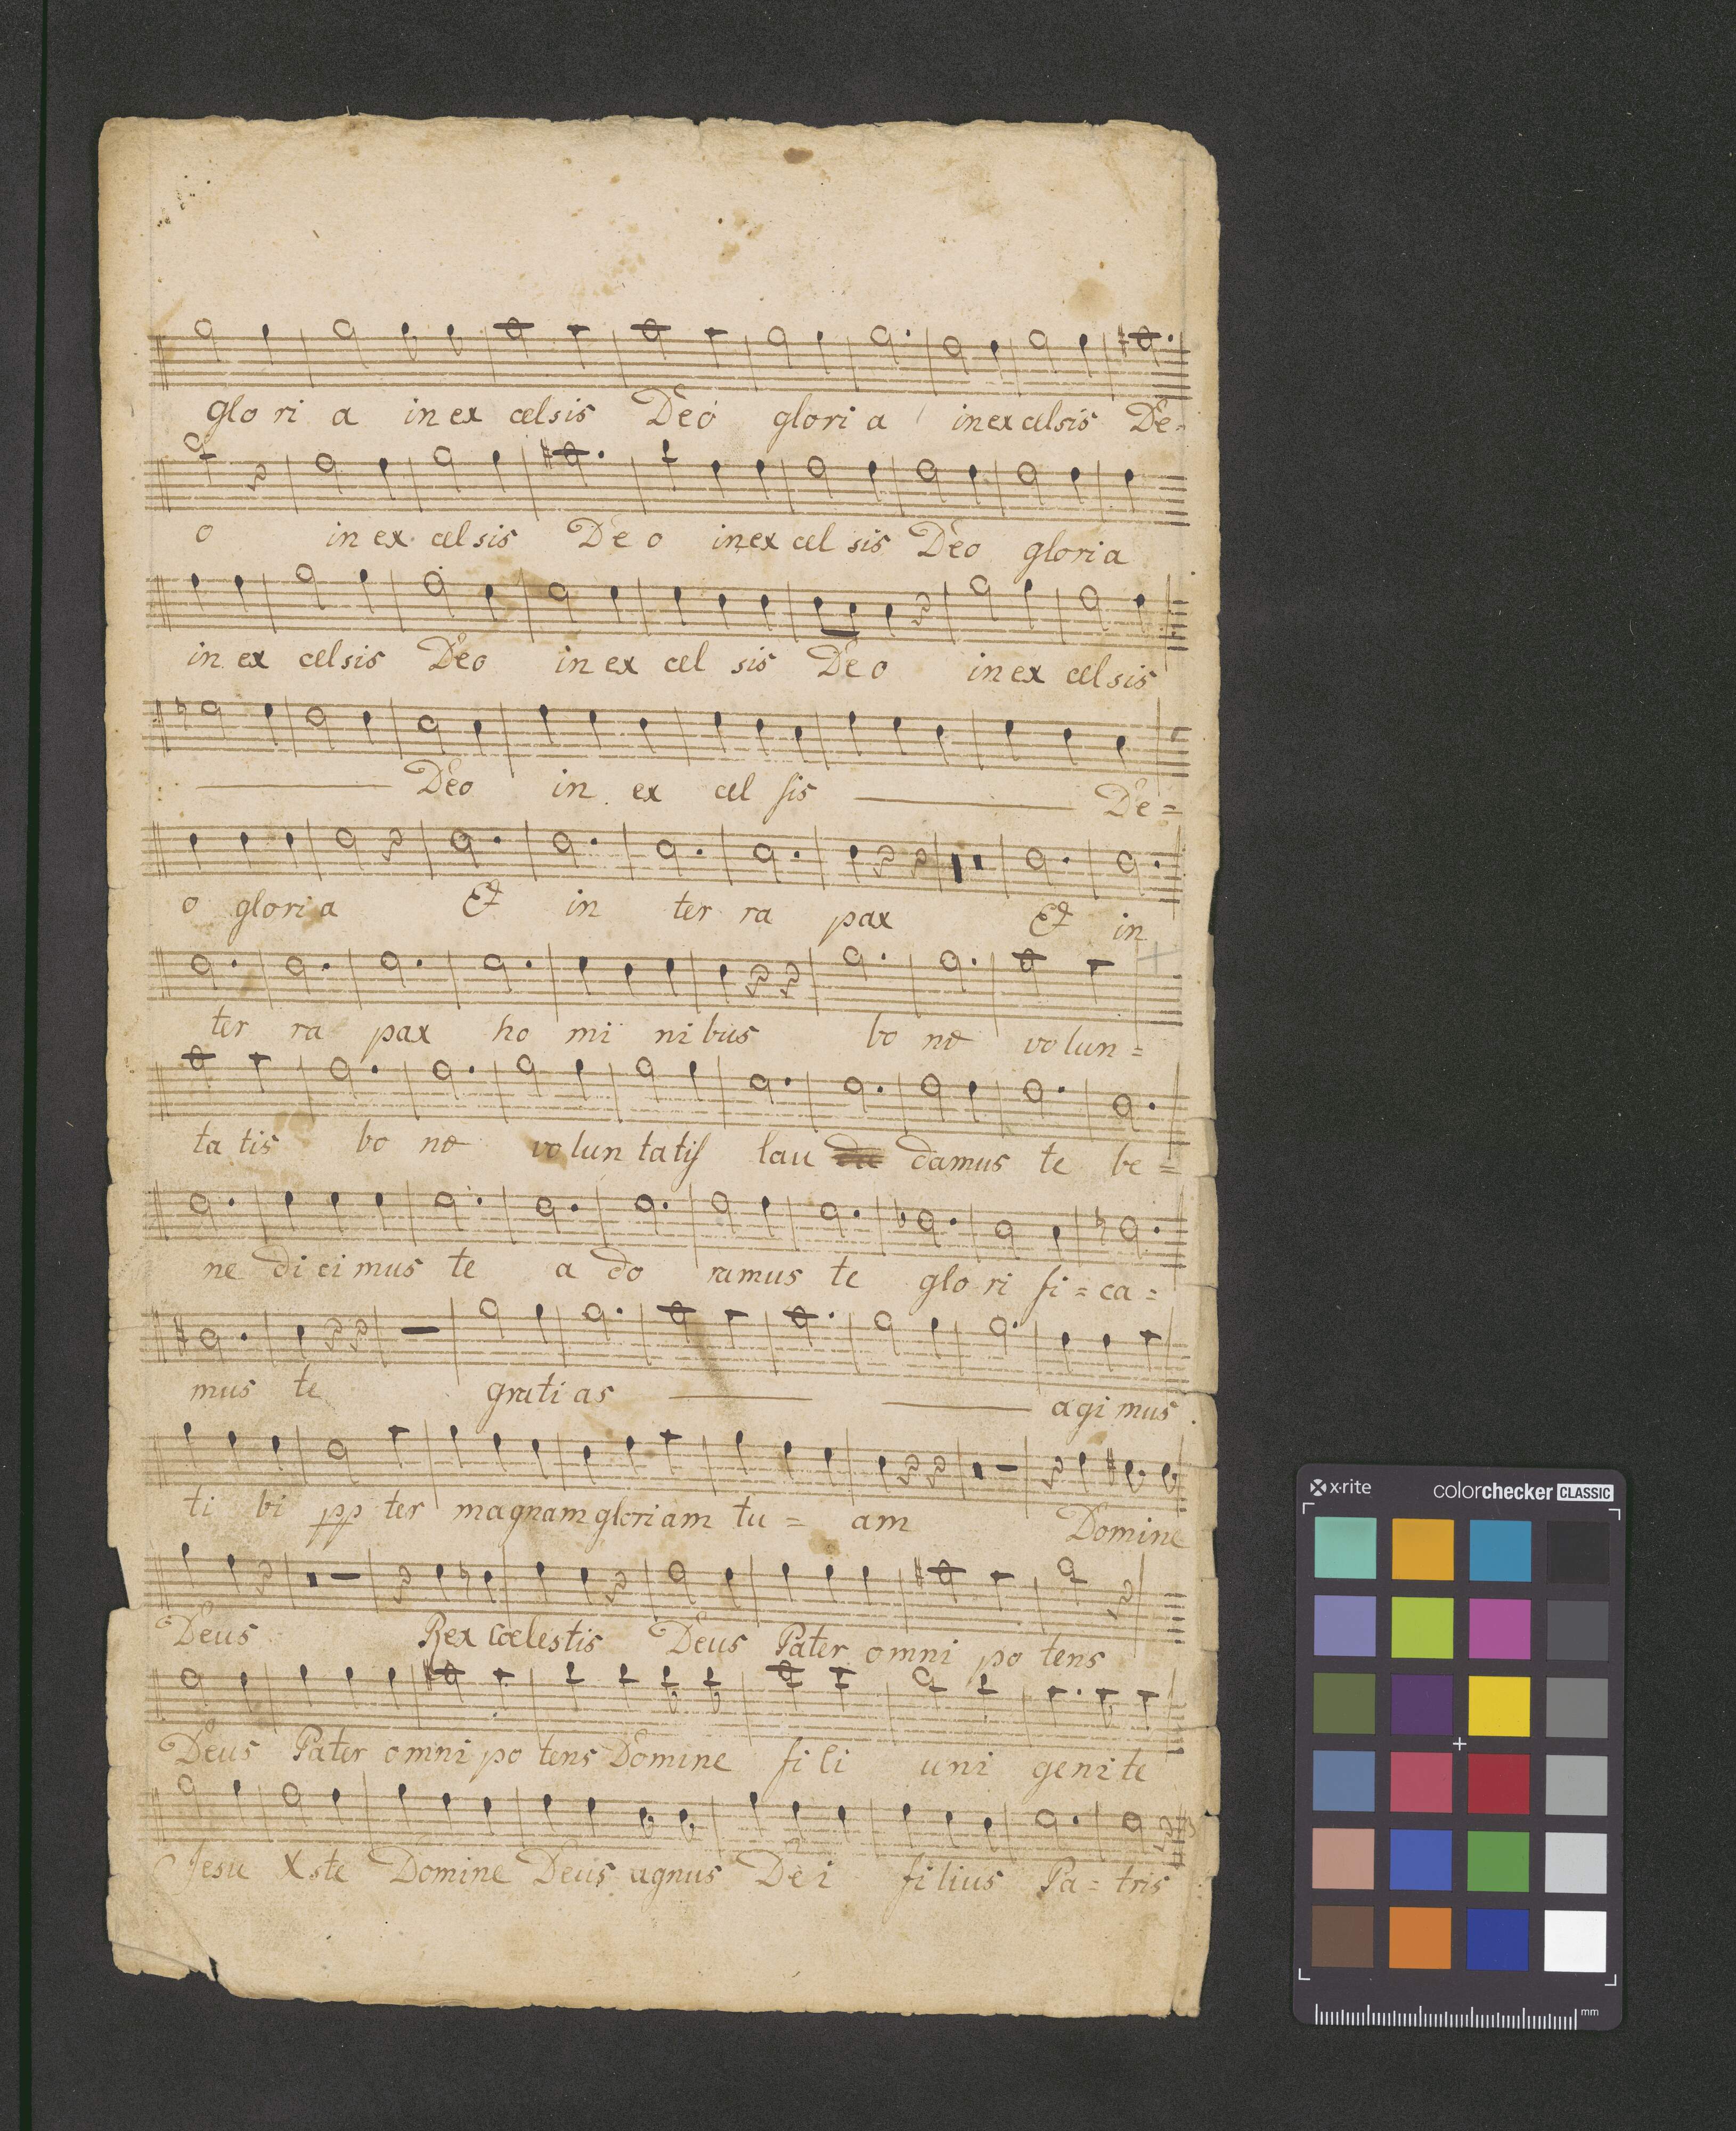 glo ri a in ex cel sis Deo glori a in ex celsis De-
o in ex cel sis De o in ex cel sis Deo gloria
in ex celsis Deo in ex cel sis De o in ex cel sis
Deo in ex cel sis De=
o glori a Et in ter ra pax Et in
ter ra pax ho mi ni bus bo næ vo lun=
ta tis bo næ vo lun ta tis lau damus te be=
ne di ci mus te a do ramus te glo ri fi=ca=
mus te grati as agi mus
ti bi pp ter magnam gloriam tu= am Domine
Deus Rex cœlestis Deus Pater omni po tens
Deus Pater omni po tens Domine fi li uni geni te
Jesu Xste Domine Deus agnus De i filius Pa= tris
x·rite colorchecker CLASSIC
mm